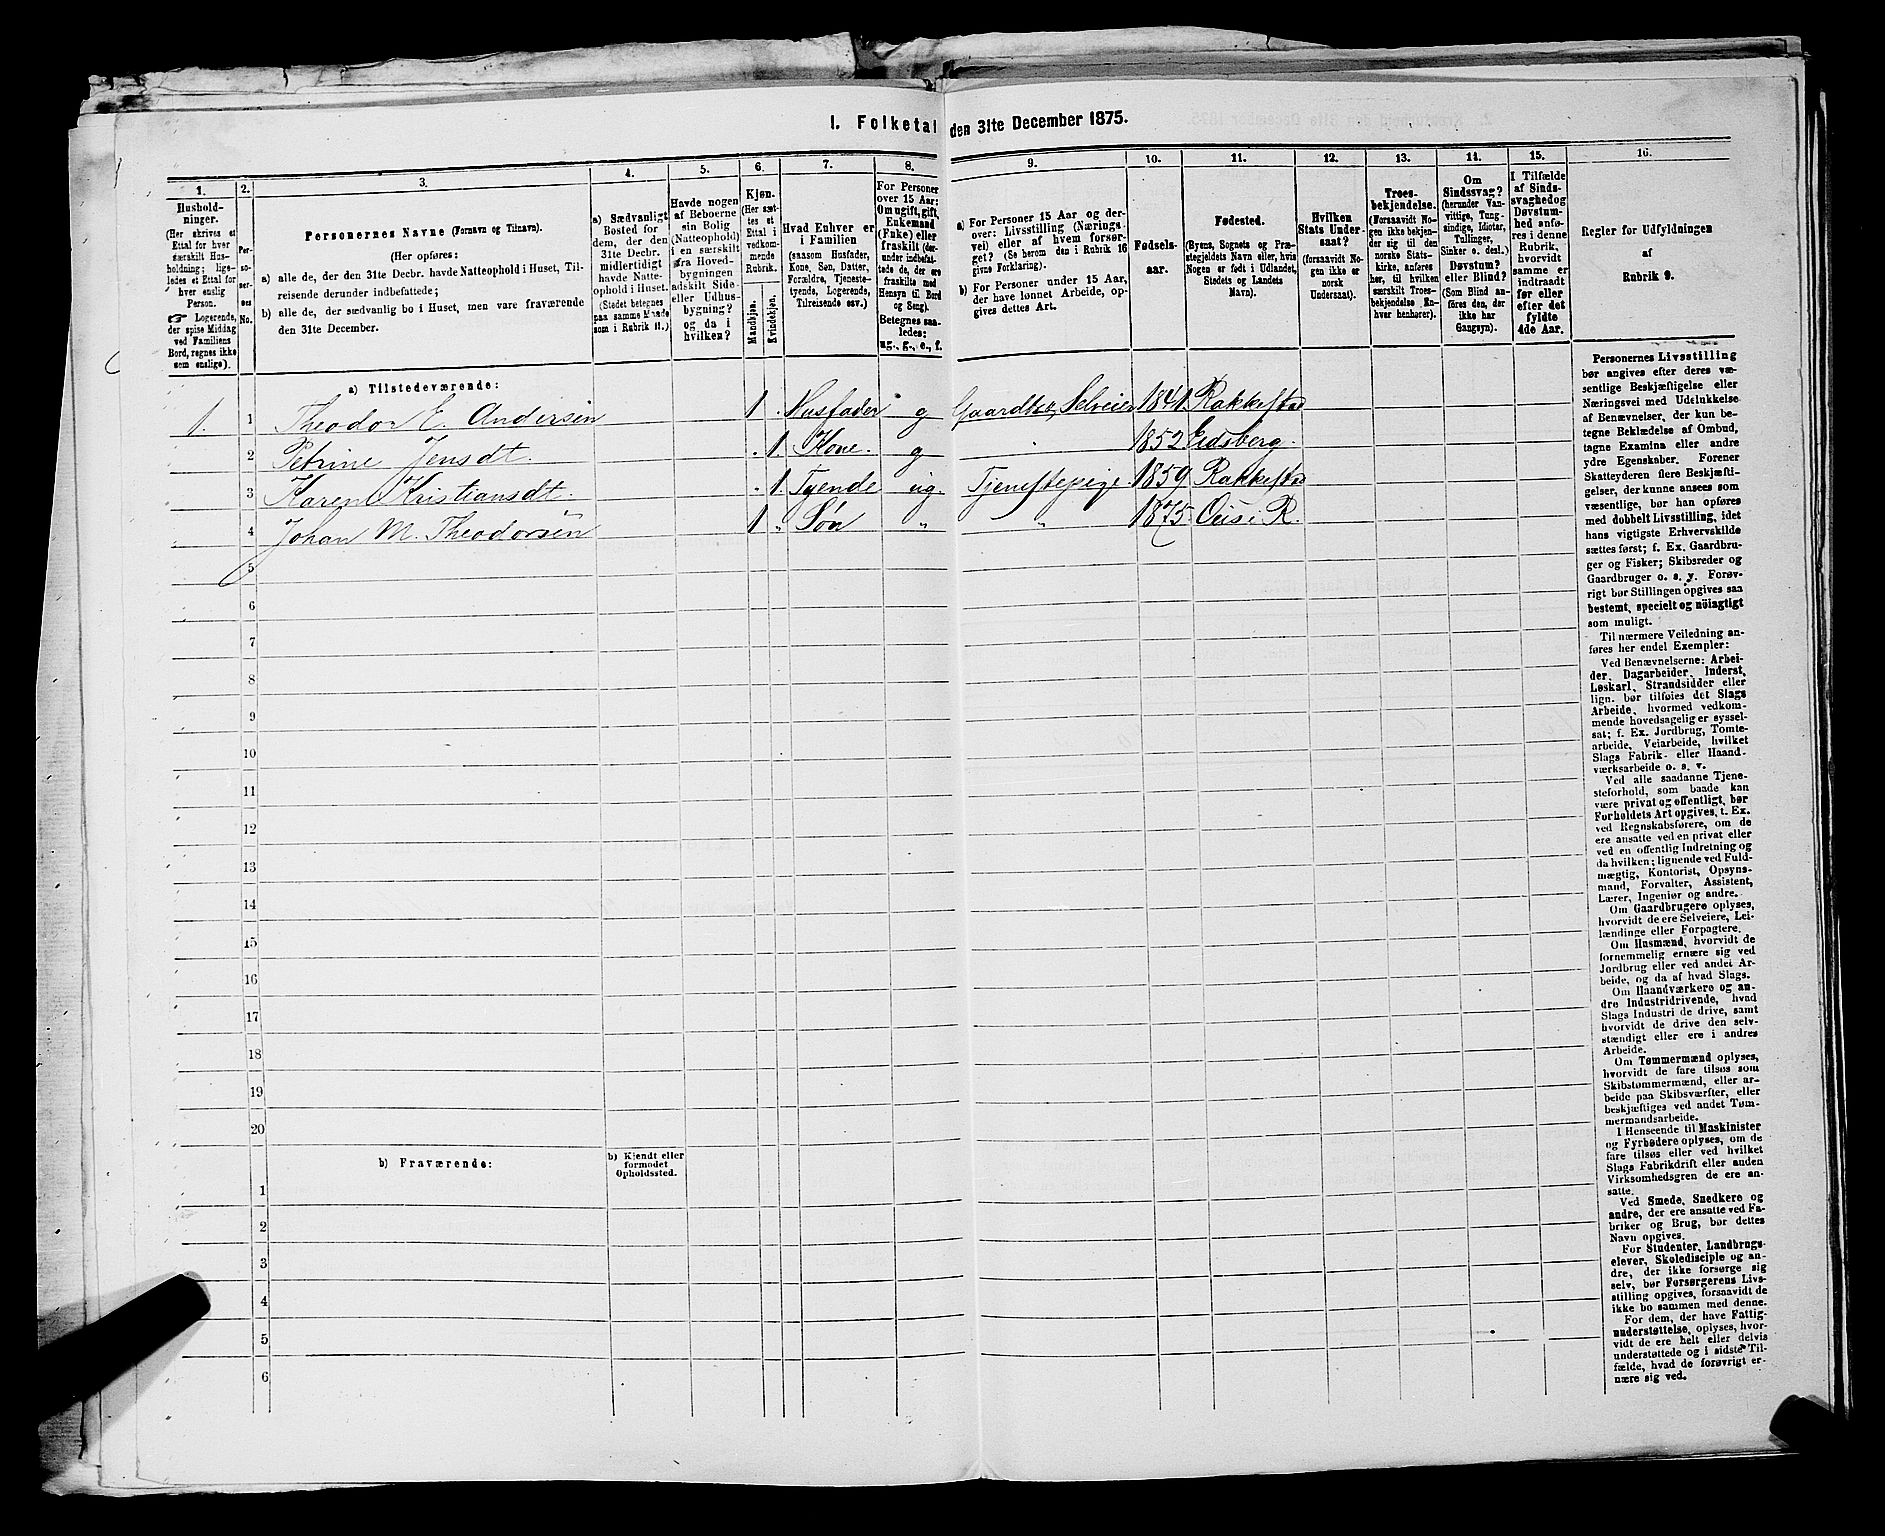 I. Folketal den 31te December 1875.
1. 2. 3. 4. 5. 6. 7. 8. 9. 10. 11. 12. 13. 14. 15. 16.
Hushold-
ninger.
(Her skrives et
Ettal for hver
særskilt Hus-
holdning; lige-
ledes et Ettal for
hver enslig
Person.
☞ Logerende,
der spise Middag
ved Familiens
Bord, regnes ikke
som enslige).
Per-
so-
ner-
nes
No.
Personernes Navne (Fornavn og Tilnavn).
(Her opføres:
a) alle de, der den 31te Decbr. havde Natteophold i Huset, Til-
reisende derunder indbefattede;
b) alle de, der sædvanlig bo i Huset, men vare fraværende
den 31te December.
a) Sædvanligt
Bosted for
dem, der den
31te Decbr.
midlertidigt
havde Natte-
ophold i Huset.
(Stedet betegnes
paa samme Maade
som i Rubrik 11.)
Havde nogen
af Beboerne
sin Bolig
(Natteophold)
i en særskilt
fra Hoved-
bygningen
adskilt Side-
eller Udhus-
bygning?
og da i
hvilken?
Kjøn.
(Her sæt-
tes et
Ettal i
vedkom-
mende
Rubrik.
Mandkjøn.
Kvindekjøn.
Hvad Enhver er
i Familien
(saasom Husfader,
Kone, Søn, Datter,
Forældre, Tjeneste-
tyende, Logerende,
Tilreisende osv.)
For Personer
over 15 Aar:
Om ugift, gift,
Enkemand
(Enke) eller
fraskilt (der-
under indbefat-
tede de, der ere
fraskilte med
Hensyn til Bord
og Seng).
Betegnes saa-
ledes:
ug., g., e., f.
a) For Personer 15 Aar og der-
over: Livsstilling (Nærings-
vei) eller af hvem forsør-
get? (Se herom den i Rubrik 16
givne Forklaring).
b) For Personer under 15 Aar,
der have lønnet Arbeide, op-
gives dettes Art.
Fødsels-
aar.
Fødested.
(Byens, Sognets og Præ-
stegjeldets Navn eller, hvis
Nogen er født i Udlandet,
Stedets og Landets
Navn).
Hvilken
Stats Under-
saat?
(forsaavidt No-
gen ikke er
norsk
Undersaat).
Troes-
bekjendelse.
(Forsaavidt No-
gen ikke bekjen-
der sig til den
norske Stats-
kirke, anføres
her, til hvilken
særskilt Troes-
bekjendelse En-
hver henhører).
Om
Sindssvag?
(herunder Van-
vittige, Tung-
sindige, Idioter,
Tullinger,
Sinker o. desl.)
Døvstum?
eller Blind?
(Som Blind an-
føres den, der
ikke har
Gangsyn).
I Tilfælde
af Sinds-
svaghed og
Døvstum-
hed anfø-
res i denne
Rubrik,
hvorvidt
samme er
indtraadt
før eller
efter det
fyldte
4de Aar.
Regler for Udfyldningen
af
Rubrik 9.
a) Tilstedeværende:
1. 1 Theodor E. Andersen 1 . Husfader g Gaardbr. Selveier 1841 Rakkestad
2 Petrine Jensdt. . 1. Kone. g 1852 Eidsberg.
3 Karen Kristiansdt. . 1. Tyende ug. Tjenestepige. 1859 Rakkestad
4 Johan M. Theodorsen 1 " Søn " " 1875 i R.
5
6
7
8
9
10
11
12
13
14
15
16
17
18
19
20
b) Fraværende:
b) Kjendt eller
formodet
Opholdssted.
1
2
3
4
5
6
Personernes Livsstilling
bør angives efter deres væ-
sentlige Beskjæftigelse eller
Næringsvei med Udelukkelse
af Benævnelser, der kun be-
tegne Beklædelse af Ombud,
tagne Examina eller andre
ydre Egenskaber. Forener
Skatteyderen flere Beskjæfti-
gelser, der kunne ansees som
væsentlige, bør han opføres
med dobbelt Livsstilling, idet
hans vigtigste Erhvervskilde
sættes først; f. Ex. Gaardbru-
ger og Fisker; Skibsreder og
Gaardbruger o. s. v. Forøv-
rigt bør Stillingen opgives saa
bestemt, specielt og nøiagtigt
som muligt.
Til nærmere Veiledning an-
føres her endel Exempler:
Ved Benævnelserne: Arbei-
der, Dagarbeider, Inderst,
Løskarl, Strandsidder eller
lign. bør tilføies det Slags
Arbeide, hvormed vedkom-
mende hovedsagelig er syssel-
sat; f. Ex. Jordbrug, Tomte-
arbeide, Veiarbeide, hvilket
Slags Fabrik- eller Haand-
værksarbeide o. s. v.
Ved alle saadanne Tjene-
steforhold, som baade kan
være privat og offentligt, bør
Forholdets Art opgives, t. Ex.
ved Regnskabsførere, om de
ere ansatte ved en privat eller
ved en offentlig Indretning og
da hvilken; lignende ved Fuld-
mægtig, Kontorist, Opsyns-
mand, Forvalter, Assistent,
Lærer, Ingeniør og andre.
Om Gaardbrugere oplyses,
hvorvidt de ere Selveiere, Lei-
lændinge eller Forpagtere.
Om Husmænd, hvorvidt de
fornemmelig ernære sig ved
Jordbrug eller ved andet Ar-
beide, og da af hvad Slags.
Om Haandværkere og an-
dre Industridrivende, hvad
Slags Industri de drive, samt
hvorvidt de drive den selv-
stændigt eller ere i andres
Arbeide.
Om Tømmermænd oplyses,
hvorvidt de fare tilsøs som
Skibstømmermænd, eller ar-
beide paa Skibsværfter, eller
beskjæftiges ved andet Tøm-
mermandsarbeide.
I Henseende til Maskinister
og Fyrbødere oplyses, om de
fare tilsøs eller ved hvilket
Slags Fabrikdrift eller anden
Virksomhedsgren de ere an-
satte.
Ved Smede, Snedkere og
andre, der ere ansatte ved Fa-
briker og Brug, bør dettes
Navn opgives.
For Studenter, Landbrugs-
elever, Skoledisciple og an-
dre, der ikke forsørge sig
selv, bør Forsørgerens Livs-
stilling opgives, forsaavidt de
ikke bo sammen med denne.
For dem, der have Fattig-
understøttelse, oplyses, hvor-
vidt de ere helt eller delvis
understøttede og i sidste Til-
fælde, hvad de forøvrigt er-
nære sig ved.